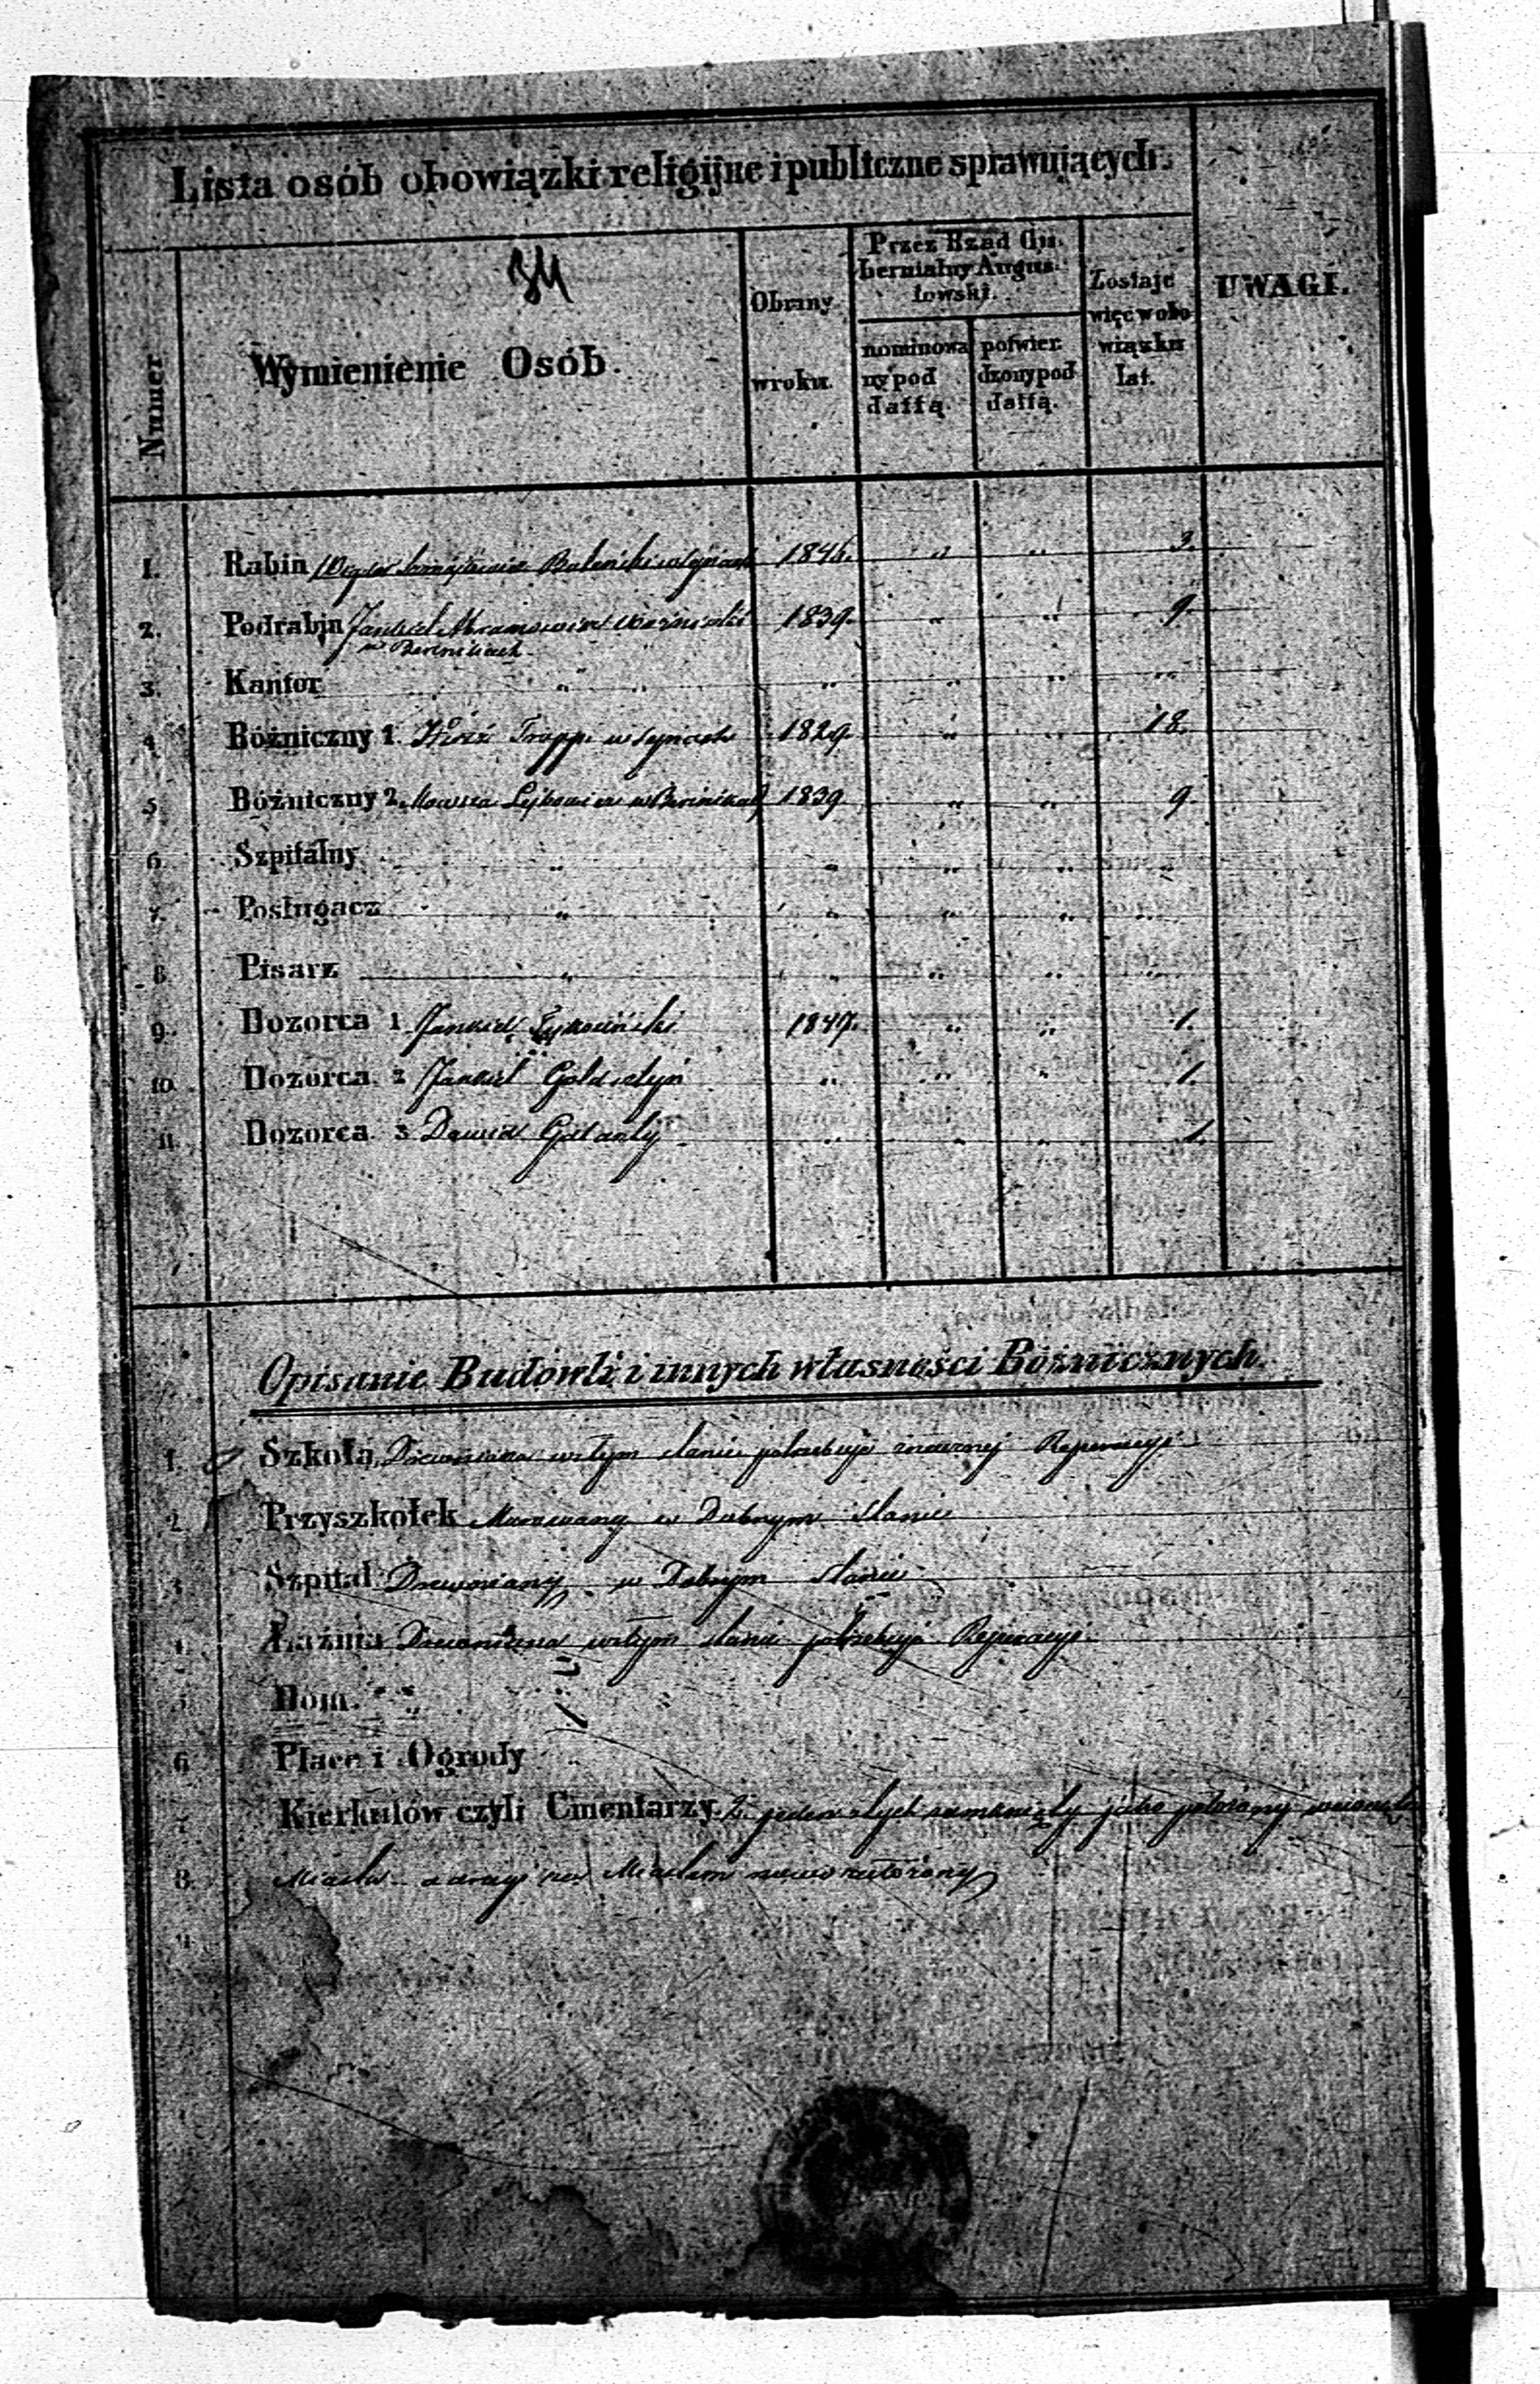 Lista osób obowiązki religijne i publiczne sprawujących.
34
Numer
Wymienienie Osób.
Obrany wroku.
Przez Rząd Gubernialny Augustowski.
nominowany pod dattą.
potwierdzony pod dattą.
Zostaje więc w obowiązku lat.
UWAGI.
1. Rabin 184 " " 3.
2. Podrabin Jankiel Abramowicz 1839. " " 9.
w
3. Kantor " " " " "
4. Bóżniczny 1. Tropp w Sejnach 1829. " " 18.
5. Bóżniczny 2. Mowsza Lejbowicz w 1839 " " 9.
6. Szpitalny " " " " "
7. Posługacz " " " " "
8. Pisarz " " " " "
9. Dozorca 1 Jankiel 1847. " " 1.
10. Dozorca 2 Jankiel Goldsztyn " " " 1.
11. Dozorca 3 Dawid Galanty " " " 1.
Opisanie Budowli i innych własności Bóżnicznych.
1. Szkoła Drewniana w złym stanie potrzebuje znacznej Reperacyi
2. Przyszkołek Murowany w Dobrym Stanie
3. Szpital Drewniany w Dobrym Stanie
4. Łaźnia Drewniana w złym stanie potrzebuje Reperacyi.
5. Dom. "
6. Place i Ogrody
7. Kierkutów czyli Cmentarzy 2. jeden z tych zamknięty jako położony
8. Miasta a drugi za Miastem nowo założony
9.